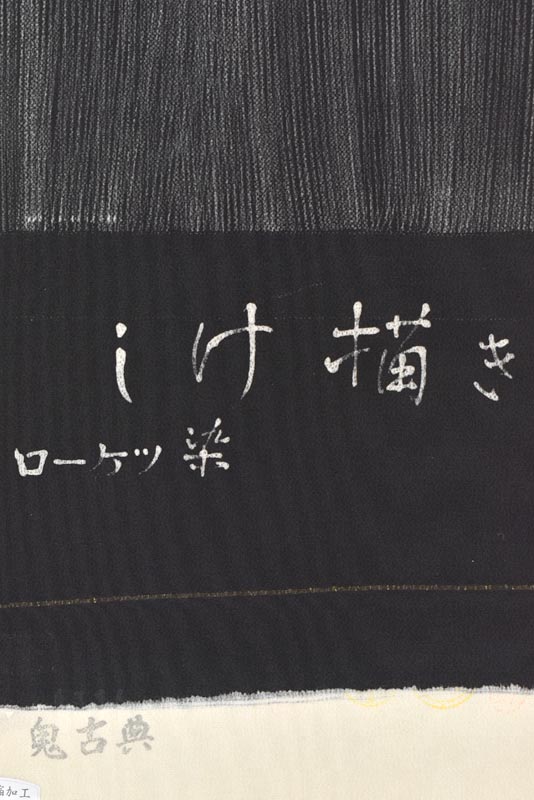 しけ描き
ローケツ染
鬼古典
加工